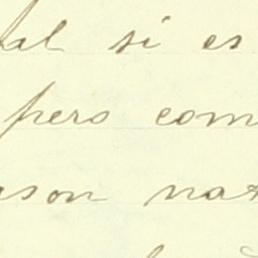 al si es
pero com
ason nat